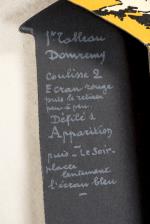 1er Tableau
Domremy
Coulisse 2
Ecran rouge
puis le retirer
peu à peu.
Défilé 1
Apparition
puis - le soir -
placer
lentement
l'écran bleu